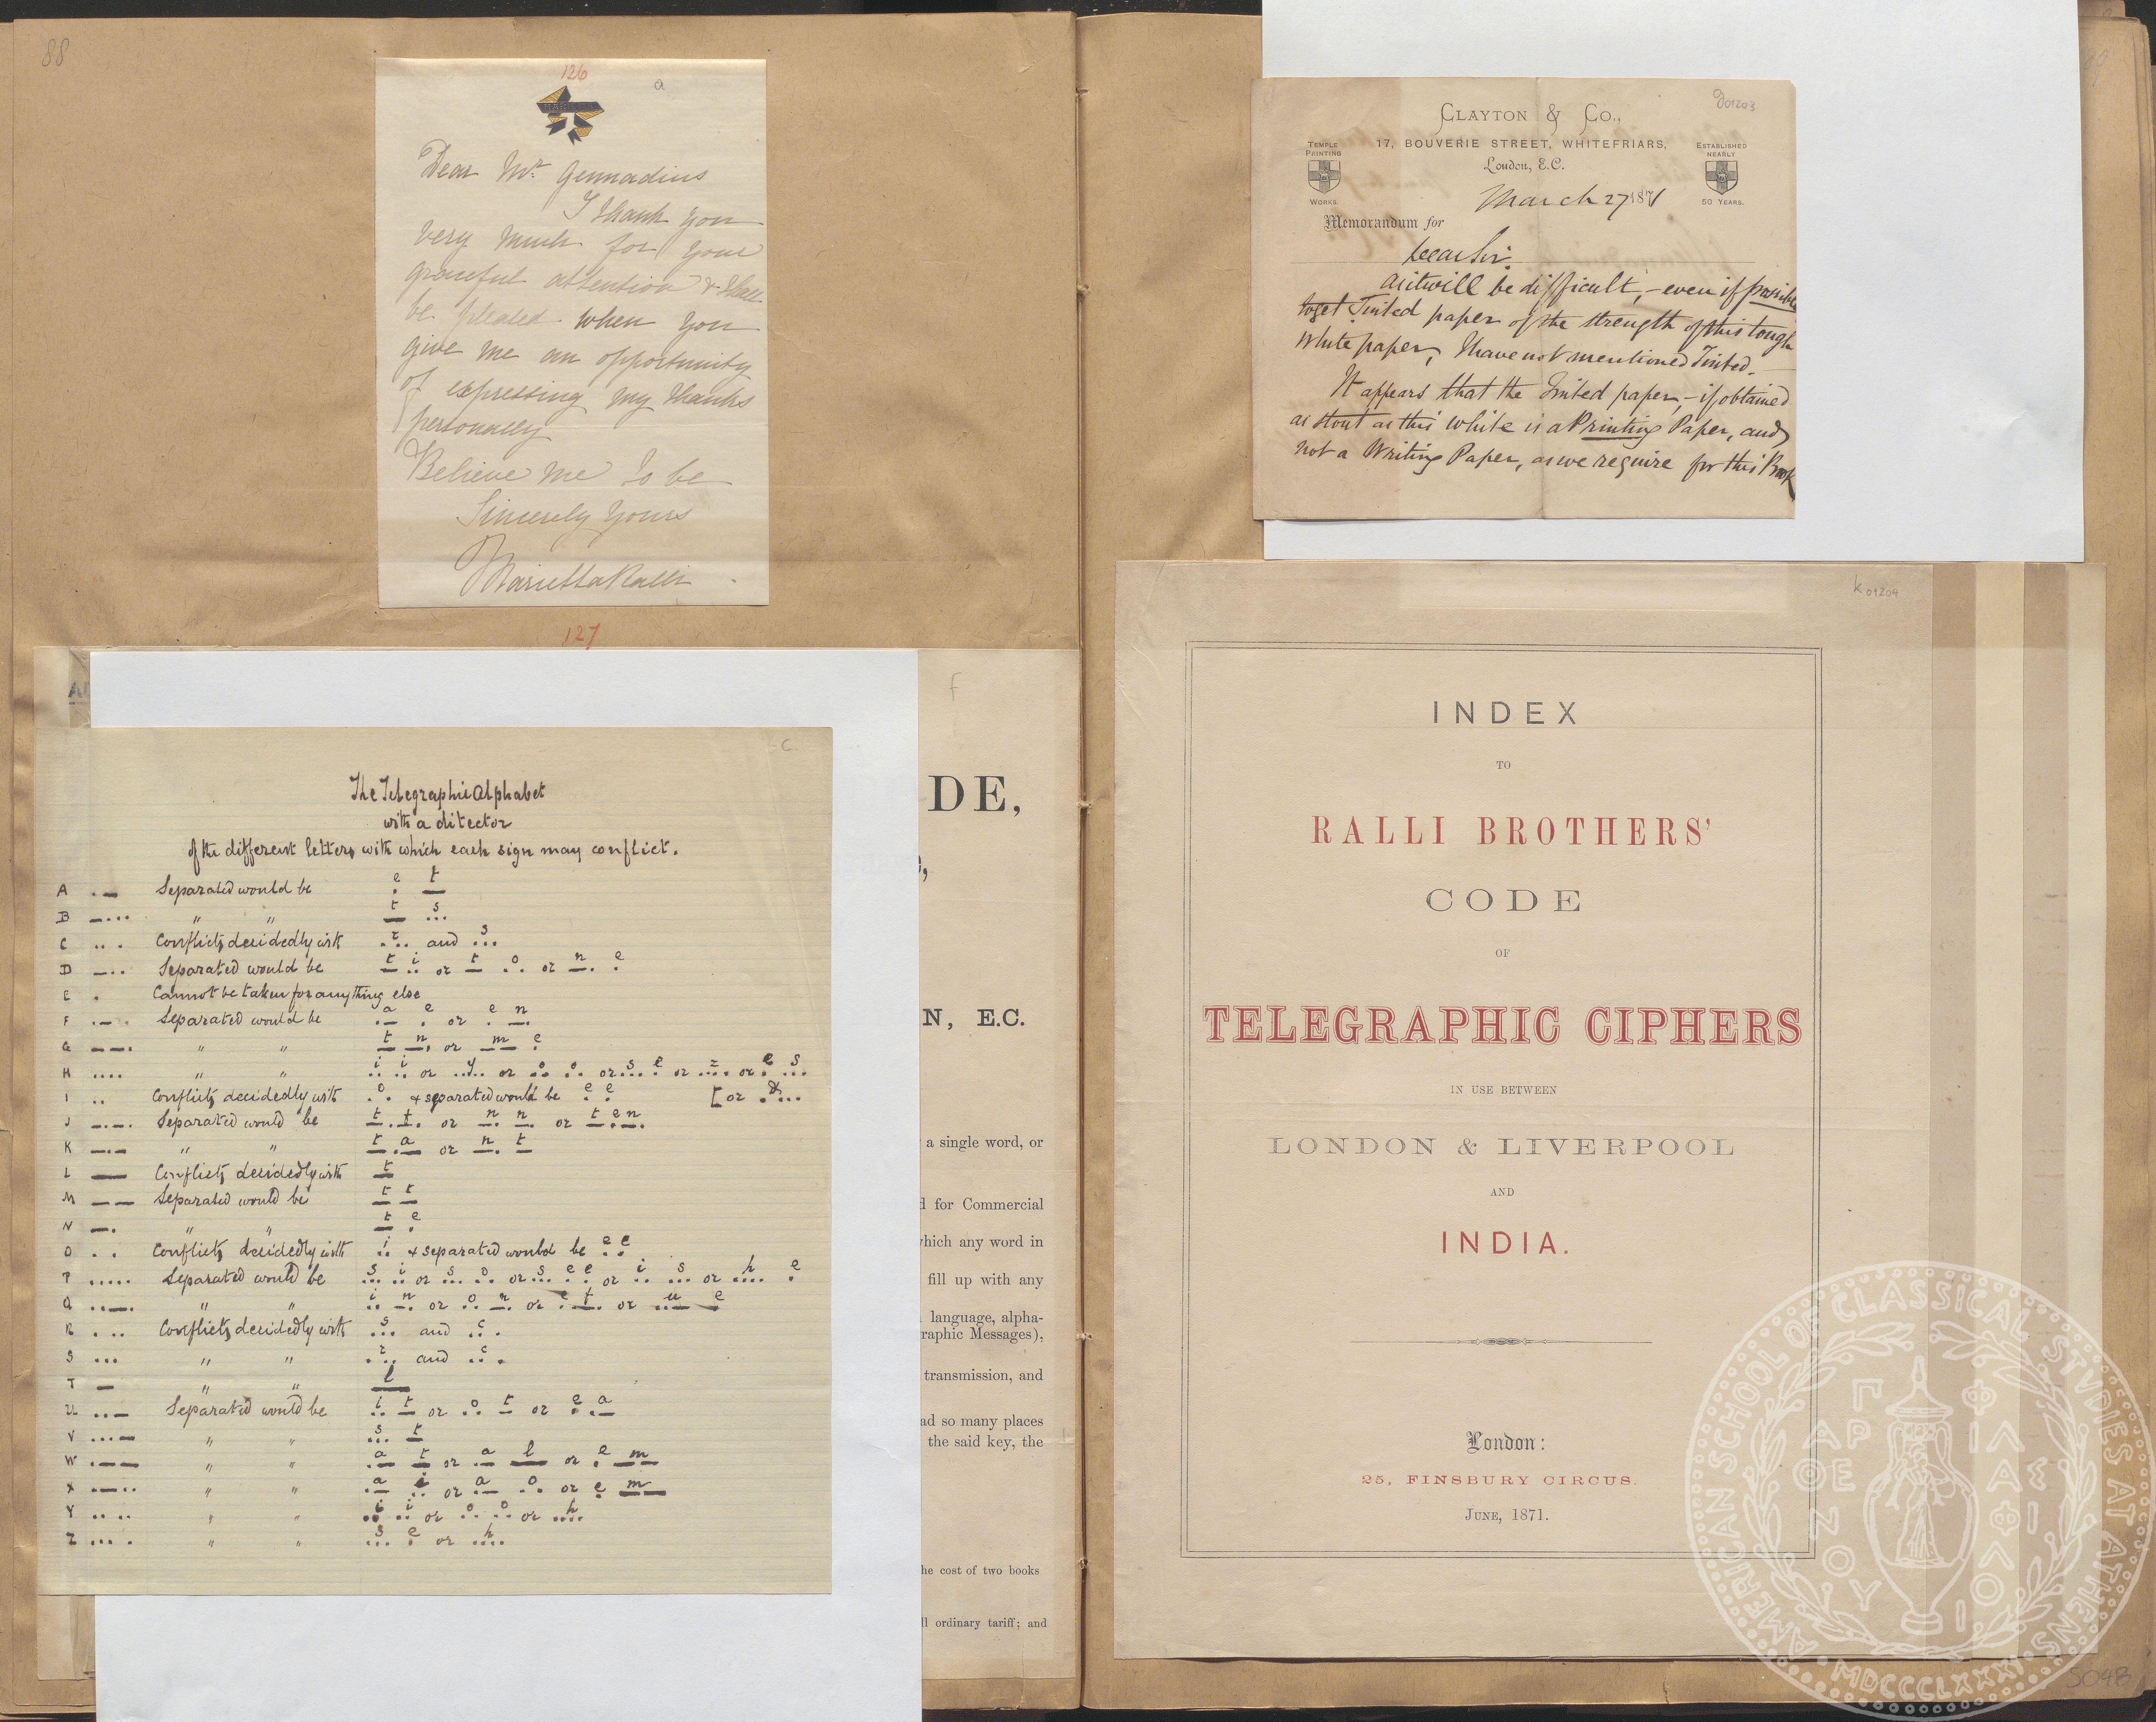 88
126
a
Dear Mr. Gennadius
I thank you
very much for your
graceful attention & shall
be pleased when you
give me an opportunity
of expressing my thanks
personally
Believe me to be
Sincerely yours
Marietta Ralli
127
f
c
The Telegraphic Alphabet
with a ditector
of the different letters with which each sign may conflict.
e t
A . — Separated would be . —
t s
B — . . . " " — . . .
r s
C . . . Conflicts decidedly with . . . and . . .
t i t o n e
D — . . Separated would be — . . or — . . or — . .
E . Cannot be taken for anything else
a e e n
F . — . Separated would be . — . or . — .
t n m e
G — — . " " — — . or — — .
i i y o o s e z e s
H . . . . " " . . . . or . . . . . or . . . . or . . . . or . . . . or . . . .
o e e &
I . . Conflicts decidedly with . . & separated would be . . [ or . . . .
t t n n t e n
J — . — . Separated would be — . — . or — . — . or — . — .
t a n t
K — . — " " — . — or — . —
t
L —— Conflicts decidedly with —
t t
M — — Separated would be — —
t e
N — . " " — .
i e e
O . . Conflicts decidedly with . . & separated would be . .
s i s o s e e i s h e
P . . . . . Separated would be . . . . . or . . . . . or . . . . . or . . . . . or . . . . .
i n o n e t u e
Q . . — . " " . . — . or . . — . or . . — . or . . — .
s c
R . . . Conflicts decidedly with . . . and . . .
r c
S . . . " " . . . and . . .
l
T — " " ——
i t o t e a
U . . — Separated would be . . — or . . — or . . —
s t
V . . . — " " . . . —
a t a l e m
W . — — " " . — — or . — —— or . — —
a i a o e m
X . — . . " " . — . . or . — . . or . — —
i i o o h
Y . . . . " " . . . . or . . . . or . . . .
s e h
Z . . . . " " . . . . or . . . .
DE,
N, E.C.
a single word, or
for Commercial
which any word in
fill up with any
language, alpha-
raphic Messages),
transmission, and
ad so many places
the said key, the
he cost of two books
ll ordinary tariff; and
g 01203
CLAYTON & CO.,
17, BOUVERIE STREET, WHITEFRIARS,
London, E.C.
TEMPLE
PRINTING
WORKS.
ESTABLISHED
NEARLY
50 YEARS.
March 27 1871
Memorandum for
Dear Sir
As it will be difficult, – even if possible
to get Tinted paper of the strength of this tough
White paper, I have not mentioned Tinted. –
It appears that the tinted paper, – if obtained
as stout as this white is a Printing Paper, and
not a Writing Paper, as we require for this Book
k 01204
INDEX
TO
RALLI BROTHERS'
CODE
OF
TELEGRAPHIC CIPHERS
IN USE BETWEEN
LONDON & LIVERPOOL
AND
INDIA.
London:
25, FINSBURY CIRCUS.
JUNE, 1871.
AMERICAN SCHOOL OF CLASSICAL STUDIES AT ATHENS
ΠΑΡΘΕΝΟΥ ΦΙΛΑΣ ΦΙΛΟΙ
MDCCCLXXXI
504B